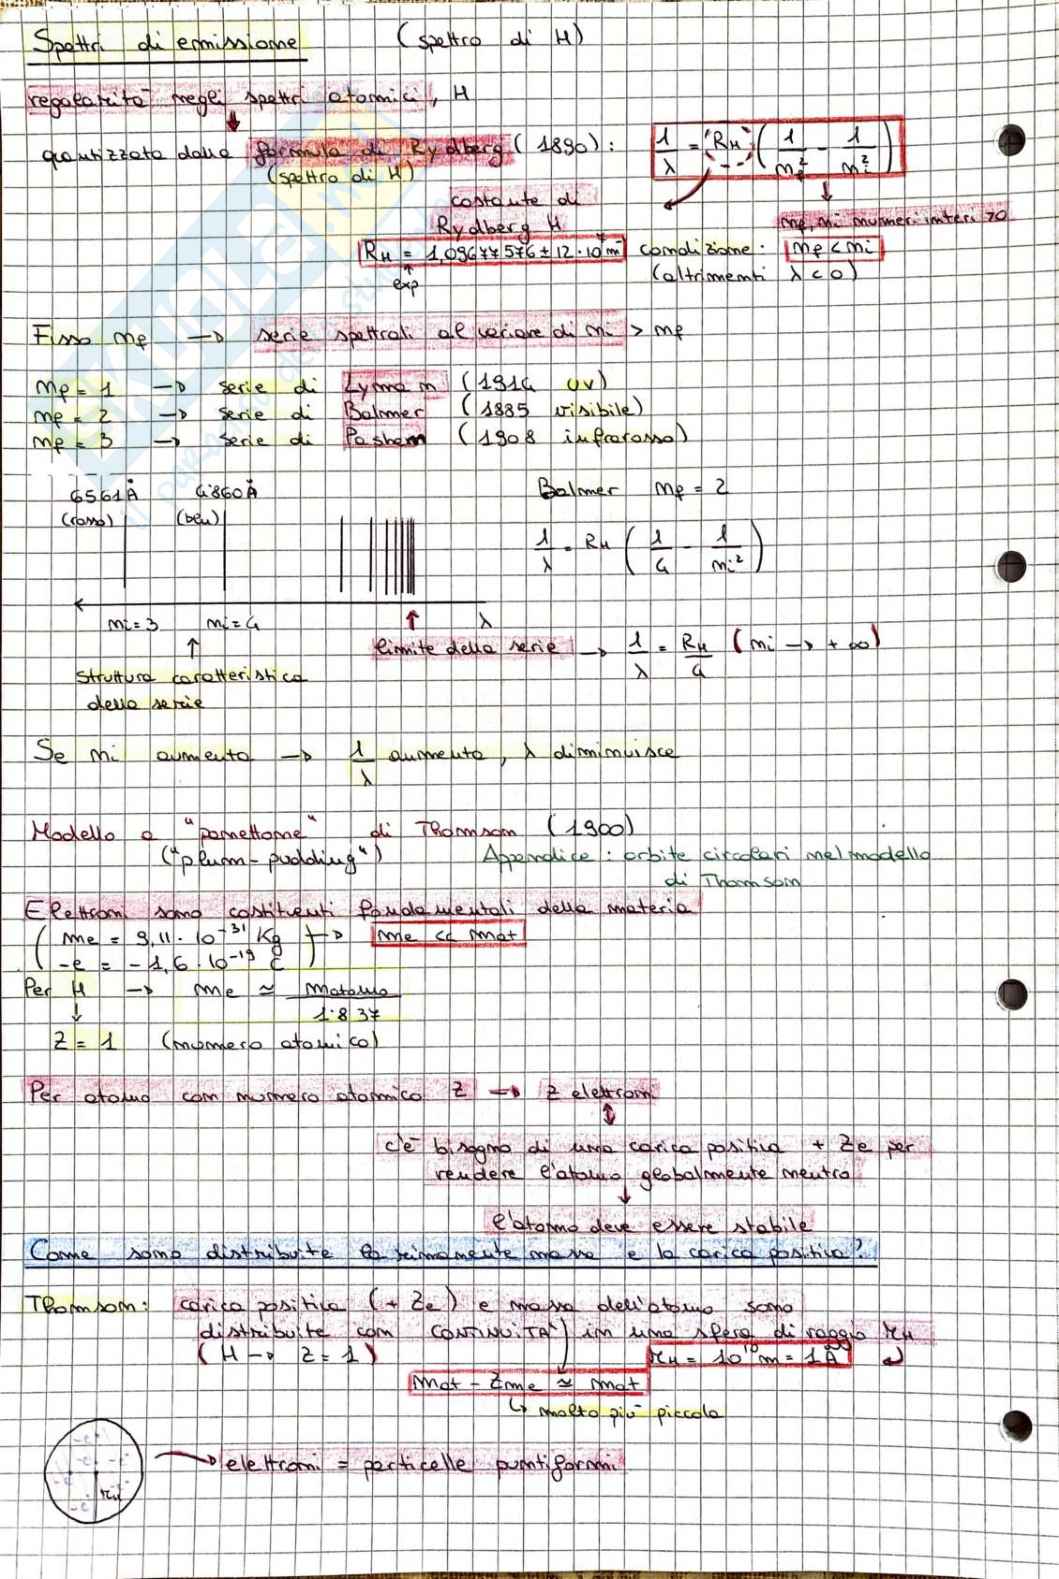 Spettri di emissione (spettro di H)
regolarità negli spettri atomici, H
quantizzata dalla formula di Rydberg (1890): 1/λ = "R_H" (1/n_f² - 1/n_i²)
(spettro di H)
costante di
Rydberg H
n_f, n_i numeri interi >0
R_H = 1,09677576 ± 12 · 10⁷ m⁻¹ condizione: n_f < n_i
exp (altrimenti λ < 0)
Fisso n_f → serie spettrali al variare di n_i > n_f
n_f = 1 → serie di Lyman (1914 UV)
n_f = 2 → serie di Balmer (1885 visibile)
n_f = 3 → serie di Pashen (1908 infrarosso)
6561 Å 4860 Å Balmer n_f = 2
(rosso) (blu)
1/λ = R_H (1/4 - 1/n_i²)
n_i = 3 n_i = 4 λ
limite della serie → 1/λ = R_H/4 (n_i → +∞)
struttura caratteristica
della serie
Se n_i aumenta → 1/λ aumenta, λ diminuisce
Modello a "panettone" di Thomson (1900)
("plum-pudding") Appendice: orbite circolari nel modello
di Thomson
Elettroni sono costituenti fondamentali della materia
(m_e = 9,11 · 10⁻³¹ Kg → m_e << m_at
-e = -1,6 · 10⁻¹⁹ C)
Per H → m_e ≃ m_atomo/1837
Z = 1 (numero atomico)
Per atomo con numero atomico Z → Z elettroni
c'è bisogno di una carica positiva + Ze per
rendere l'atomo globalmente neutro
l'atomo deve essere stabile
Come sono distribuite la rimanente massa e la carica positiva?
Thomson: carica positiva (+Ze) e massa dell'atomo sono
distribuite con CONTINUITA' in una sfera di raggio r_H
(H → Z = 1) r_H = 10⁻¹⁰ m = 1 Å
m_at - Zm_e ≃ m_at
↳ molto più piccola
-e -e
elettroni = particelle puntiformi
-e -e
r_H
-e